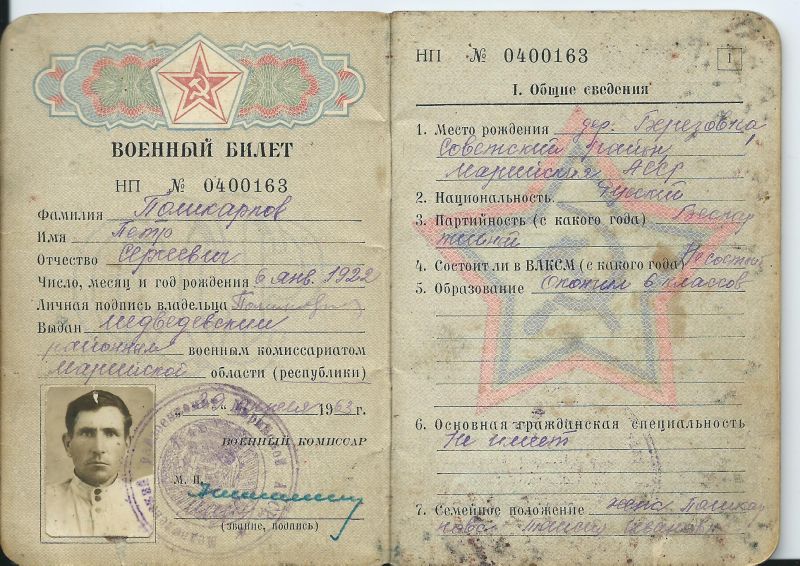 ВОЕННЫЙ БИЛЕТ
НП № 0400163
Фамилия Поликарпов
Имя Петр
Отчество Сергеевич
Число, месяц и год рождения 6 янв. 1922
Личная подпись владельца
Выдан Медведевским
районным военным комиссариатом
Марийской области (республики)
1963 г.
ВОЕННЫЙ КОМИССАР
М. П.
(звание, подпись)
НП № 0400163
1
I. Общие сведения
1. Место рождения дер. Березовка
Советский район,
Марийская АССР
2. Национальность. Русский
3. Партийность (с какого года) Беспар
тийный
4. Состоит ли в ВЛКСМ (с какого года) Не состоит
5. Образование Окончил 6 классов
6. Основная гражданская специальность
Не имеет
7. Семейное положение жена Поликар
пова Ивановна